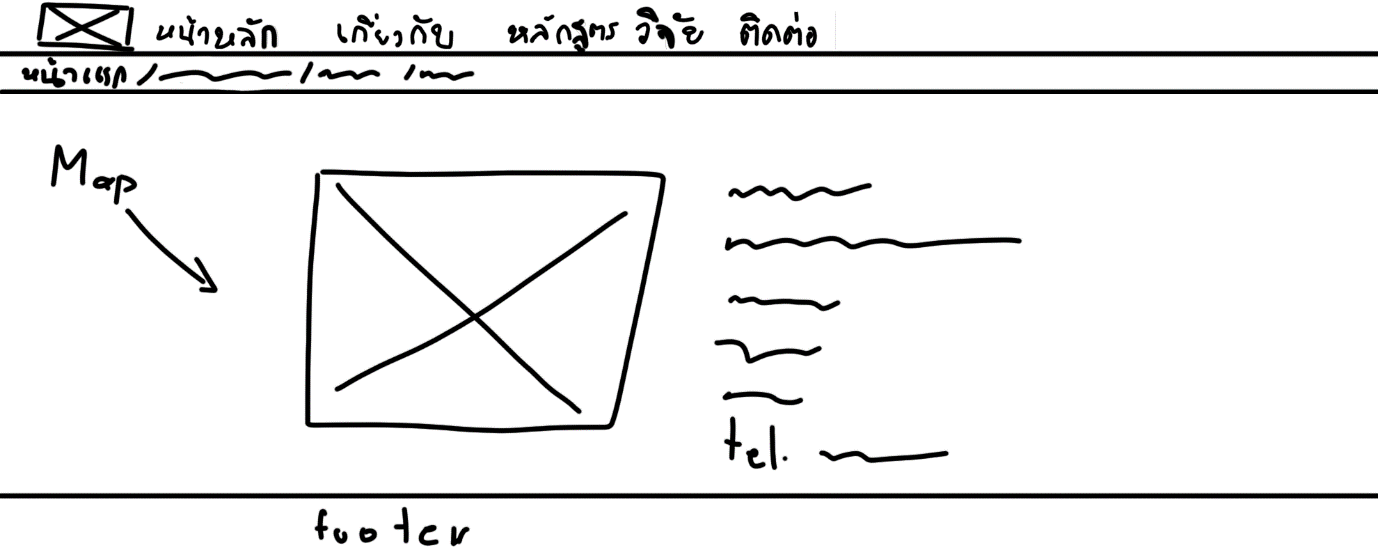 หน้าหลัก เกี่ยวกับ หลักสูตร วิจัย ติดต่อ
หน้าแรก / / /
Map
tel.
footer